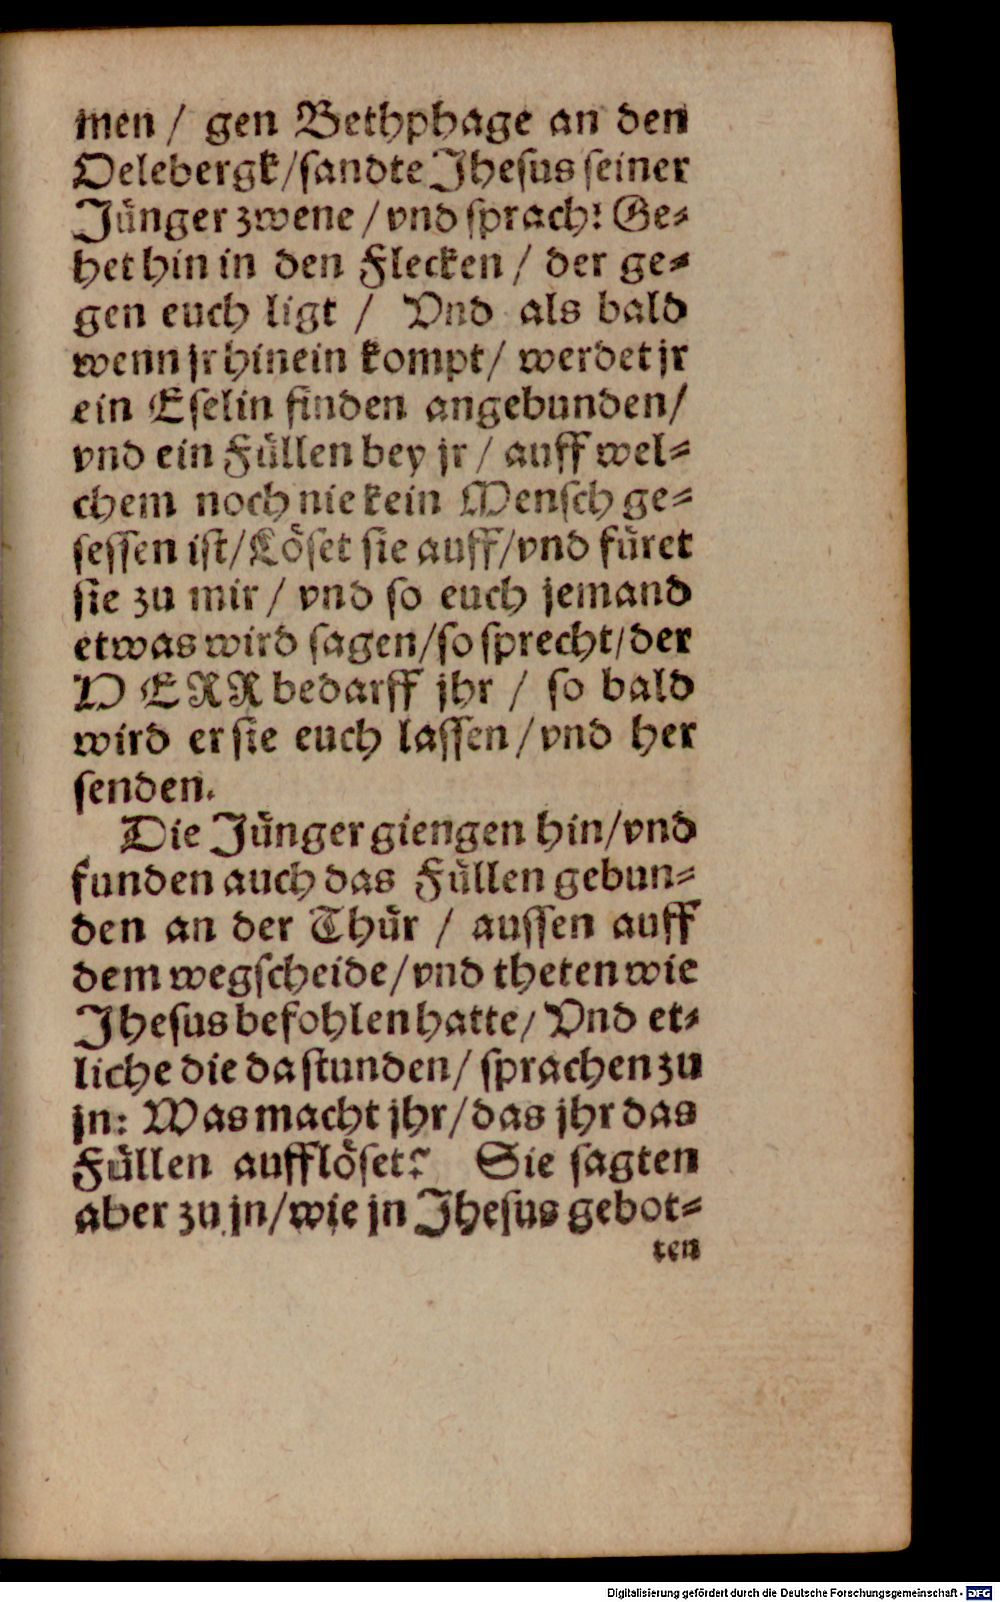 men / gen Bethphage an den
Oelebergk/ſandte Jheſus ſeiner
Jünger zwene / vnd ſprach: Ge⸗
het hin in den Flecken / der ge⸗
gen euch ligt / Vnd als bald
wenn jr hinein kompt/ werdet jr
ein Eſelin finden angebunden/
vnd ein Füllen bey jr / auff wel⸗
chem noch nie kein Menſch ge⸗
ſeſſen iſt/Löſet ſie auff/vnd füret
ſie zu mir / vnd ſo euch jemand
etwas wird ſagen/ſo ſprecht/der
HERR bedarff jhr / ſo bald
wird er ſie euch laſſen/vnd her
ſenden.
Die Jünger giengen hin/vnd
funden auch das Füllen gebun⸗
den an der Thür / auſſen auff
dem wegſcheide/vnd theten wie
Jheſus befohlen hatte/ Vnd et⸗
liche die da ſtunden/ ſprachen zu
jn: Was macht jhr/das jhr das
Füllen aufflöſet? Sie ſagten
aber zu jn/wie jn Jheſus gebot⸗
ten
Digitalisierung gefördert durch die Deutsche Forschungsgemeinschaft - DFG